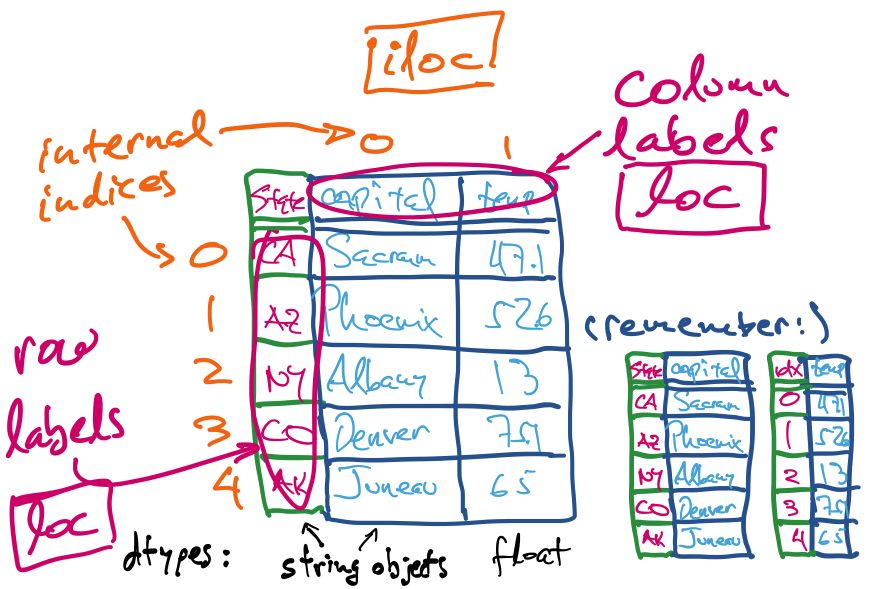 iloc
column
labels
loc
internal
indices
0 1
State capital temp
0 CA Sacram 47.1
1 AZ Phoenix 52.6
2 NY Albany 13
3 CO Denver
4 AK Juneau 65
row
labels
loc
dtypes: string objects float
(remember:)
State capital
CA Sacram
AZ Phoenix
NY Albany
CO Denver
AK Juneau
idx temp
0 47.1
1 52.6
2 13
3
4 65